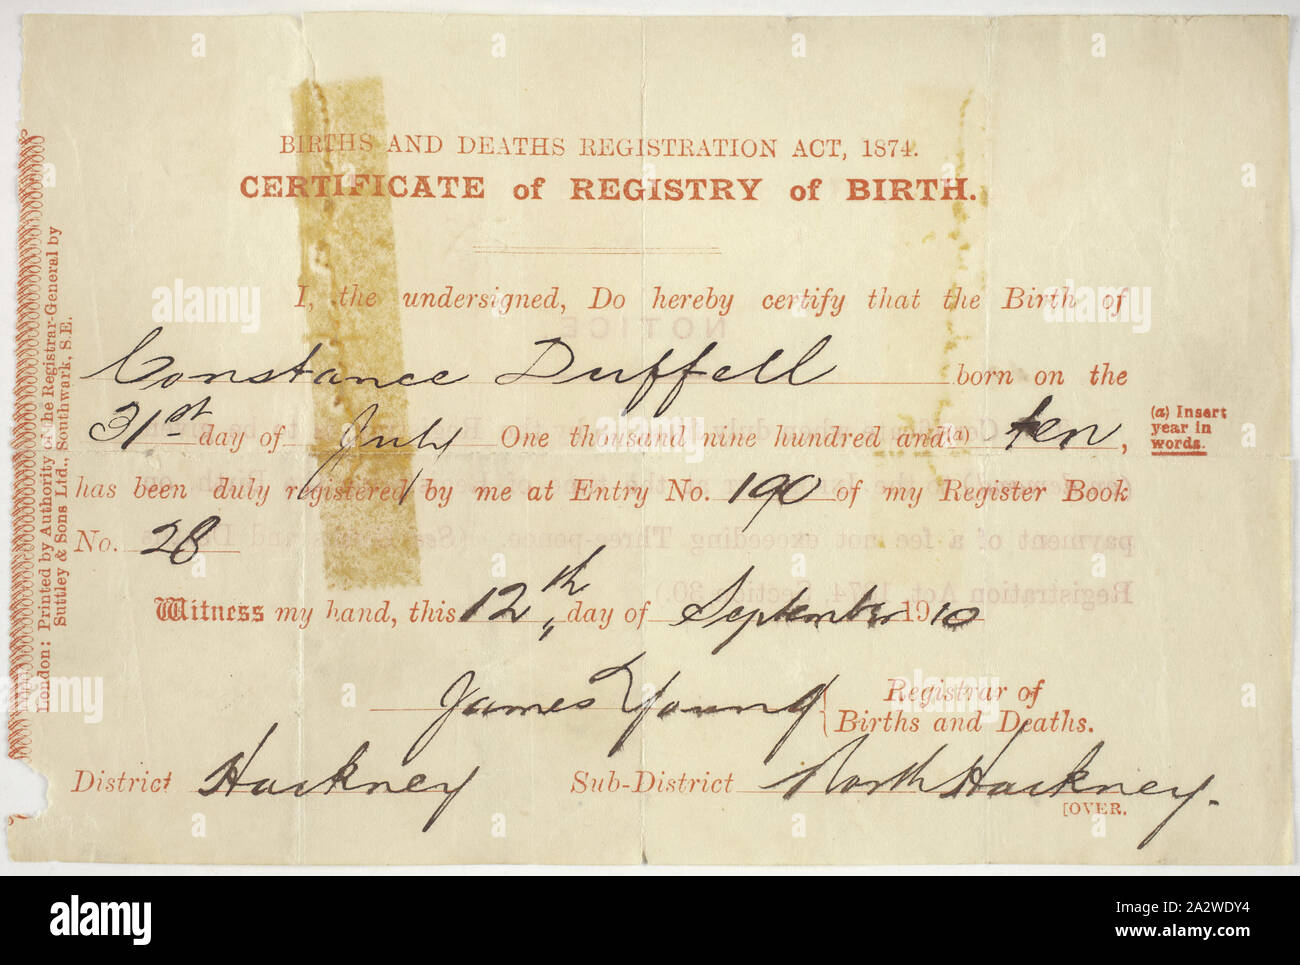 BIRTHS AND DEATHS REGISTRATION ACT, 1874.
CERTIFICATE of REGISTRY of BIRTH.
I, the undersigned, Do hereby certify that the Birth of
Constance Duffell born on the
31st day of July One thousand nine hundred and (a) ten,
(a) Insert
year in
words.
has been duly registered by me at Entry No. 190 of my Register Book
No. 28
Witness my hand, this 12th day of September 1910
James Young Registrar of
Births and Deaths.
District Hackney Sub-District North Hackney.
[OVER.
London: Printed by Authority of the Registrar-General by
Suttley & Sons Ltd., Southwark, S.E.
NOTICE
payment of a fee not exceeding Three-pence.
Registration Act, 1874, Section 30.)
a alamy
alamy
Image ID: 2A2WDY4
www.alamy.com